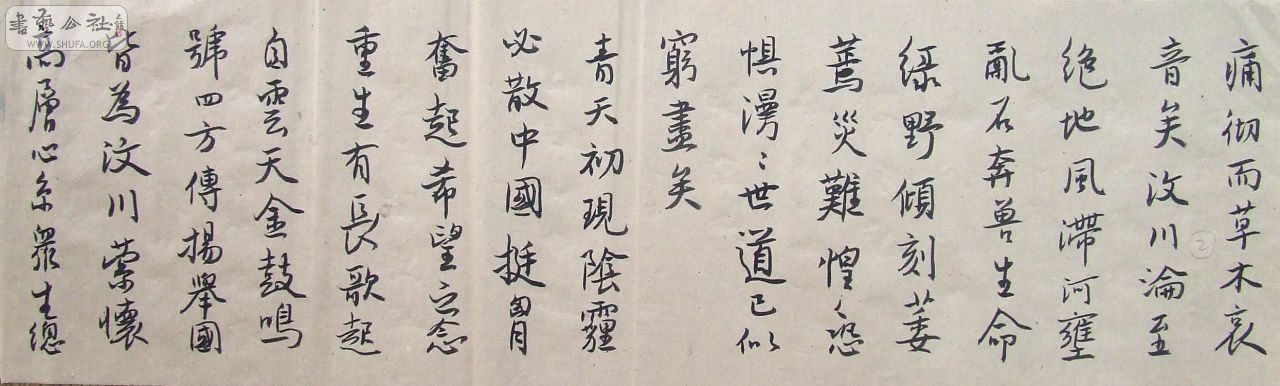 痛彻而草木哀
音矣汶川淪至
绝地風滯河壅
亂石奔兽生命
绿野傾刻萎
蔫災難惶々恐
惧漫々世道已似
窮盡矣
青天初現陰霾
必散中國挺胃
奮起希望之念
重生有長歌起
自雲天金鼓鳴
號四方傳揚舉國
皆為汶川縈懷
高層心系眾生總
2
書藝公社
WWW.SHUFA.ORG